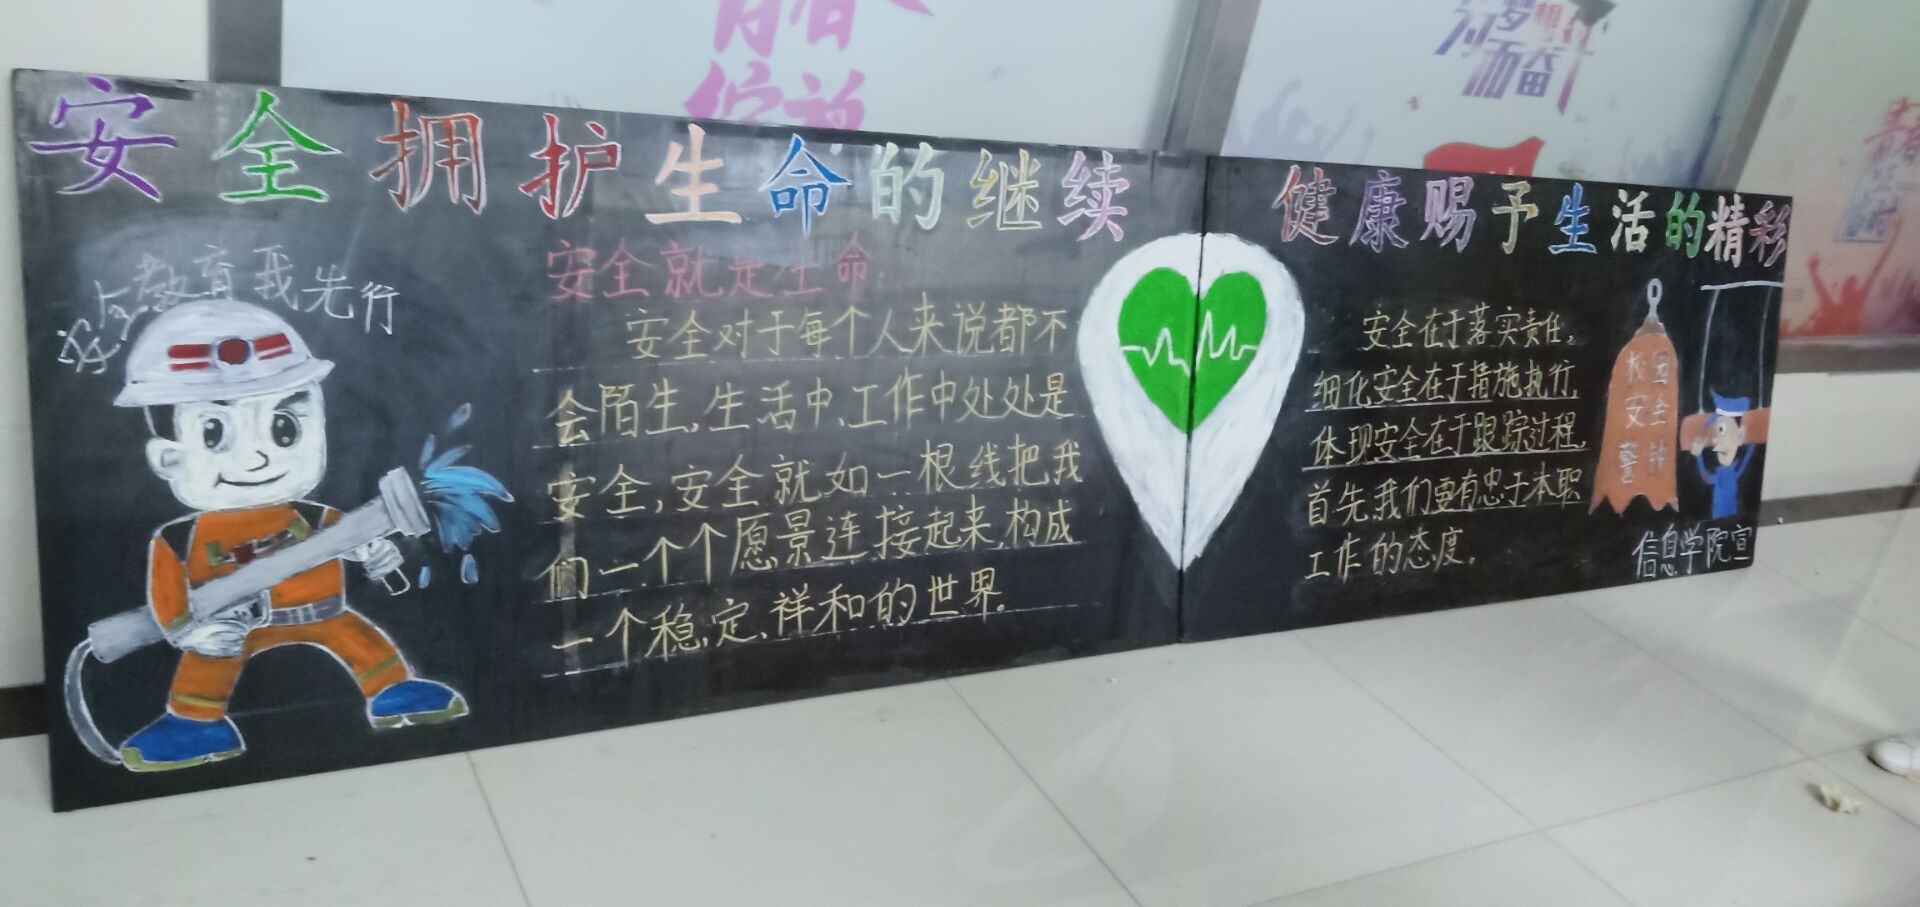 安全拥护生命的继续
健康赐予生活的精彩
教育我先行
安全就是生命:
安全对于每个人来说都不
会陌生,生活中,工作中处处是
安全,安全就如一根线把我
们一个个愿景连接起来,构成
一个稳,定,祥和的世界.
安全在于落实责任,
细化安全在于措施执行,
体现安全在于跟踪过程,
首先,我们要有忠于本职
工作的态度。
校园
安全
警钟
信息学院宣
青春
绽放
为梦想
而奋斗